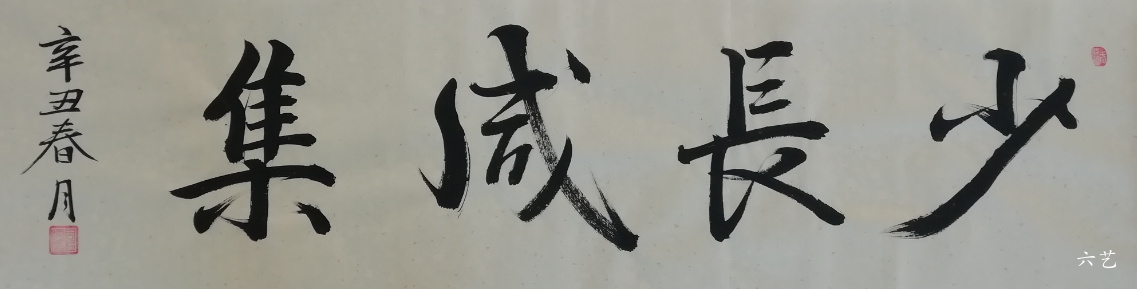 少長咸集
辛丑春月
六艺